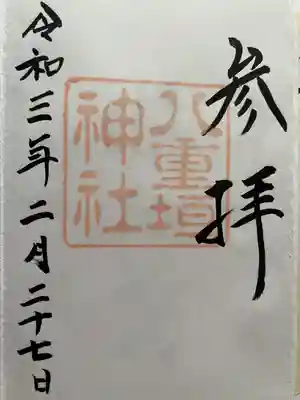 参拝
八重垣
神社
令和三年二月二十七日